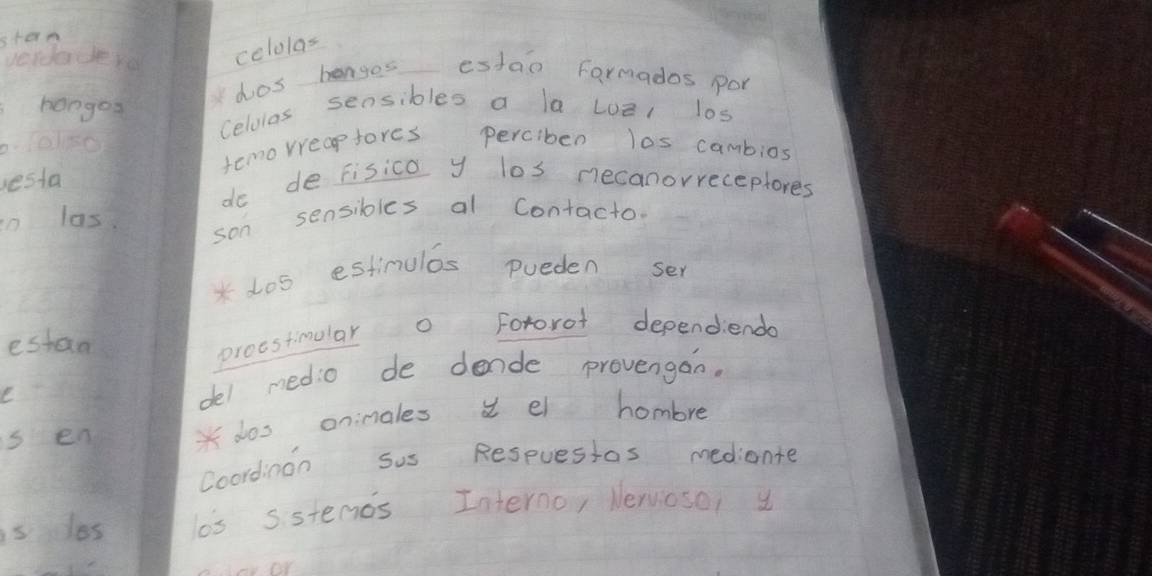 stan
verdadero
hongos
falso
las.
estan
s en
s los
celulas
* Los hongos están Formados por
celulas sensibles a la Luz, los
temorreceptores perciben los cambios
de de Fisico y los mecanorreceptores
son sensibles al Contacto.
* Los estimulós Pueden ser
proestimular o Fotorot dependiendo
del medio de donde provengán.
* Los animales y el hombre
Coordinán sus Respuestas mediante
lós sistemás Interno, Nervioso, y